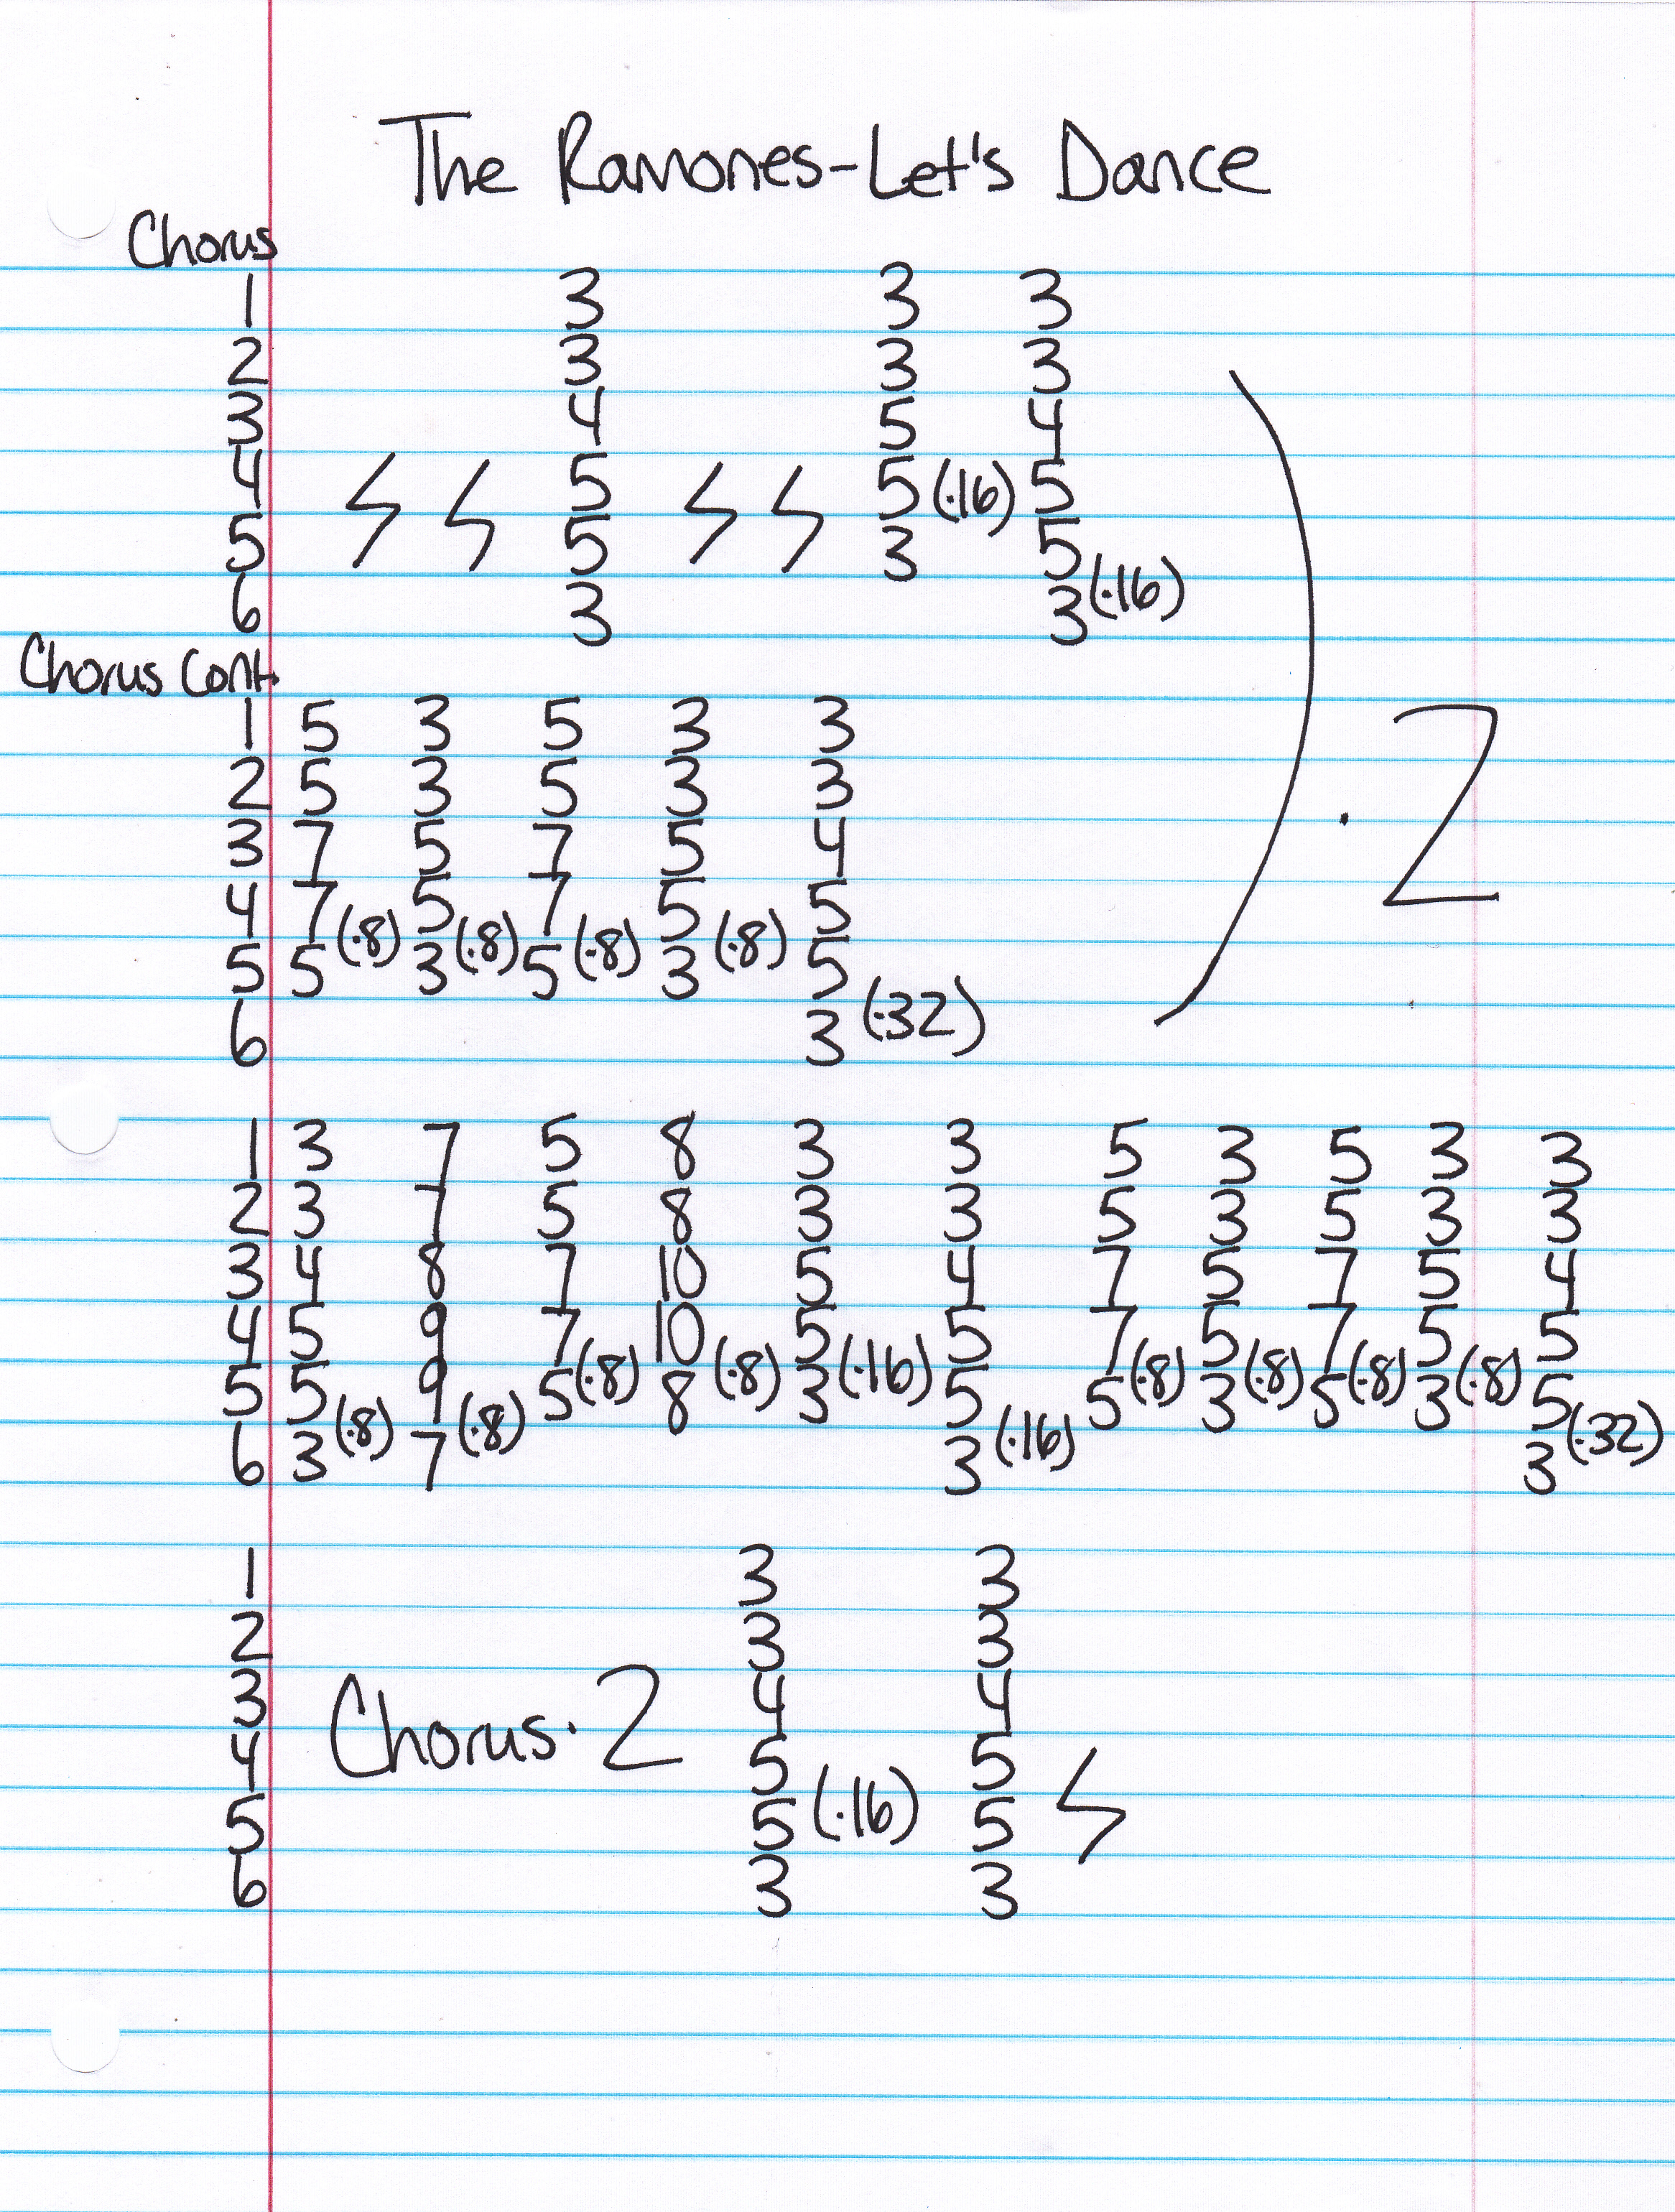 The Ramones-Let's Dance
Chorus
1 3 3 3
2 3 3 3
3 4 5 4
4 5 5 (·16) 5
5 5 3 5
6 3 3 (·16)
Chorus Cont.
1 5 3 5 3 3
2 5 3 5 3 3
3 7 5 7 5 4
4 7 (·8) 5 (·8) 7 (·8) 5 (·8) 5
5 5 3 5 3 5
6 3 (·32)
· 2
1 3 7 5 8 3 3 5 3 5 3 3
2 3 7 5 8 3 3 5 3 5 3 3
3 4 8 7 10 5 4 7 5 7 5 4
4 5 9 7 (·8) 10 (·8) 5 (·16) 5 7 (·8) 5 (·8) 7 (·8) 5 (·8) 5
5 5 9 5 8 3 5 5 3 5 3 5
6 3 (·8) 7 (·8) 3 (·16) 3 (·32)
1 3 3
2 3 3
3 4 4
Chorus · 2
4 5 5
5 5 (·16) 5
6 3 3